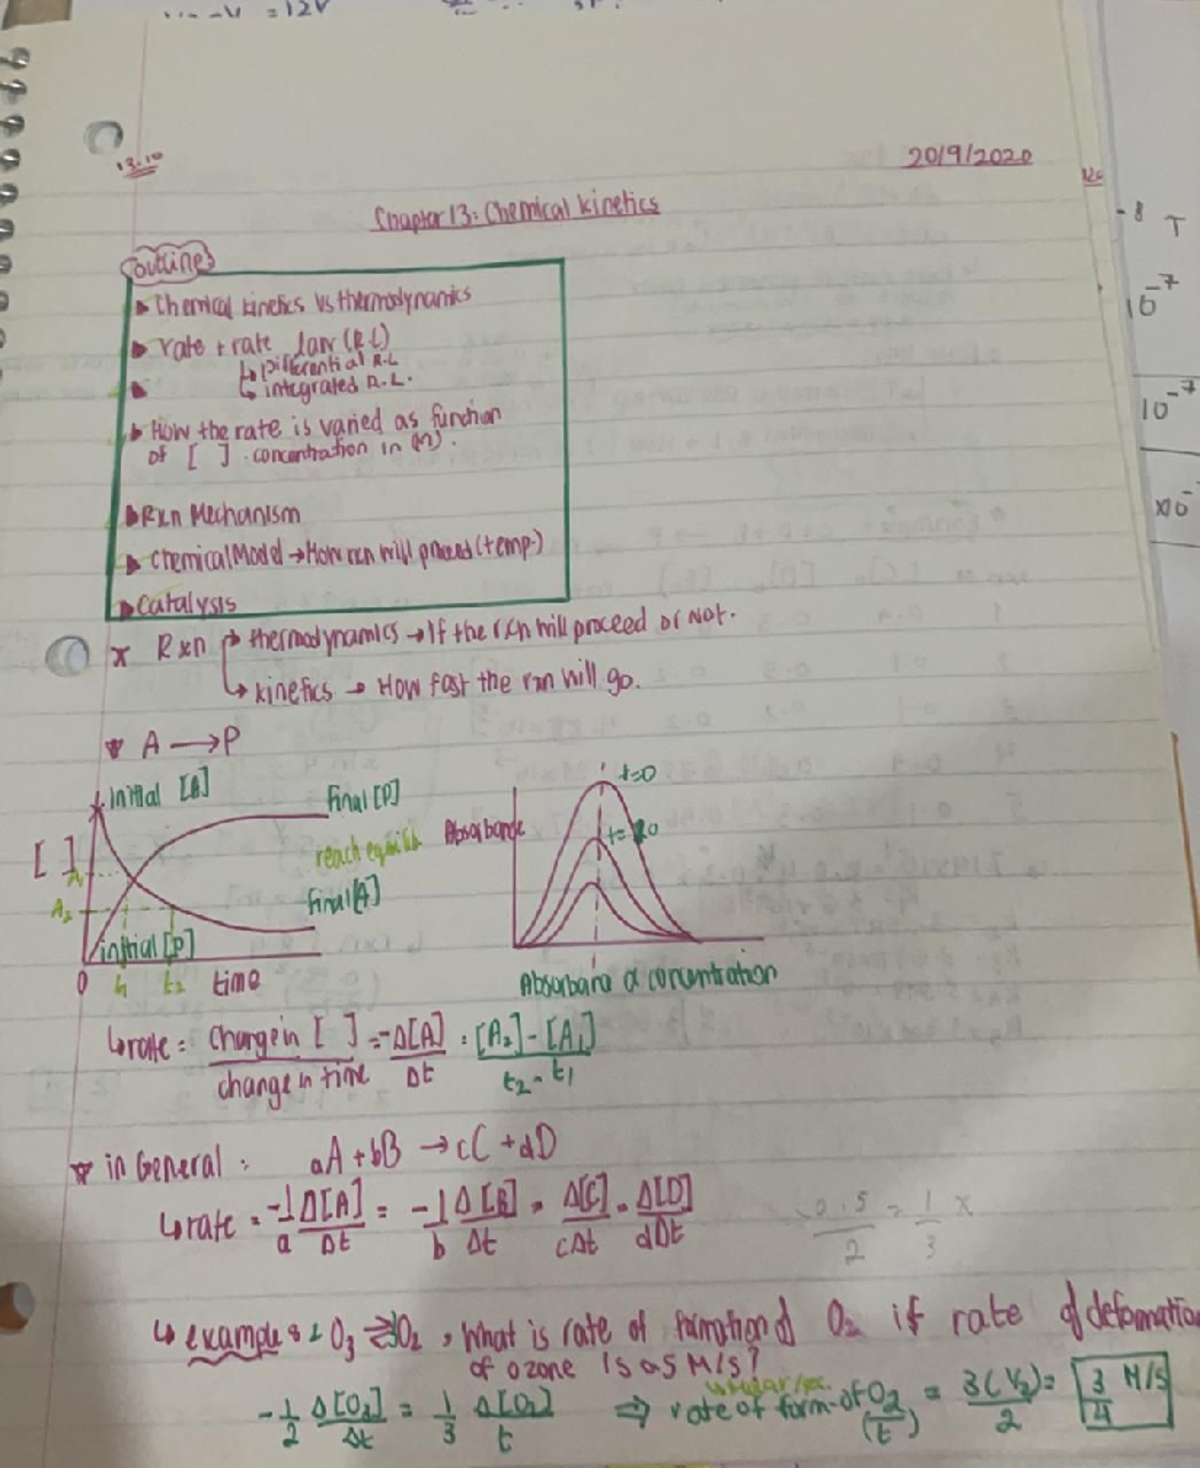 = 12V
13.10
20/9/2020
Chapter 13: Chemical kinetics
Outline
Chemical kinetics Vs thermodynamics
rate + rate law (R.L)
↳ Differential R.L
↳ integrated R.L.
How the rate is varied as function
of [ ] . concentration in (M).
Rxn Mechanism
Chemical Model → How rxn will proceed (temp.)
Catalysis
Rxn → thermodynamics → If the rxn will proceed or Not.
↳ kinetics → How fast the rxn will go.
A → P
initial [A]
Final [P]
[ ]
reach equilib
A₂
Final [A]
initial [P]
0 t₁ t₂ time
t=0
Absorbance
Absorbance α concentration
↳ rate = change in [ ] / change in time = -Δ[A] / Δt = [A₂] - [A₁] / t₂ - t₁
in General : aA + bB → cC + dD
↳ rate = -1/a Δ[A]/Δt = -1/b Δ[B]/Δt = Δ[C]/cΔt = Δ[D]/dΔt
0.5/2 = 1/3 x
↳ example: 2 O₃ ⇌ 3O₂ , What is rate of formation of O₂ if rate of deformation
of ozone is 0.5 M/s?
-1/2 Δ[O₃]/Δt = 1/3 Δ[O₂]/t ⇒ rate of form. of O₂ (t) = 3(1/2)/2 = 3/4 M/s
-8 T
10⁻⁷
10⁻⁷